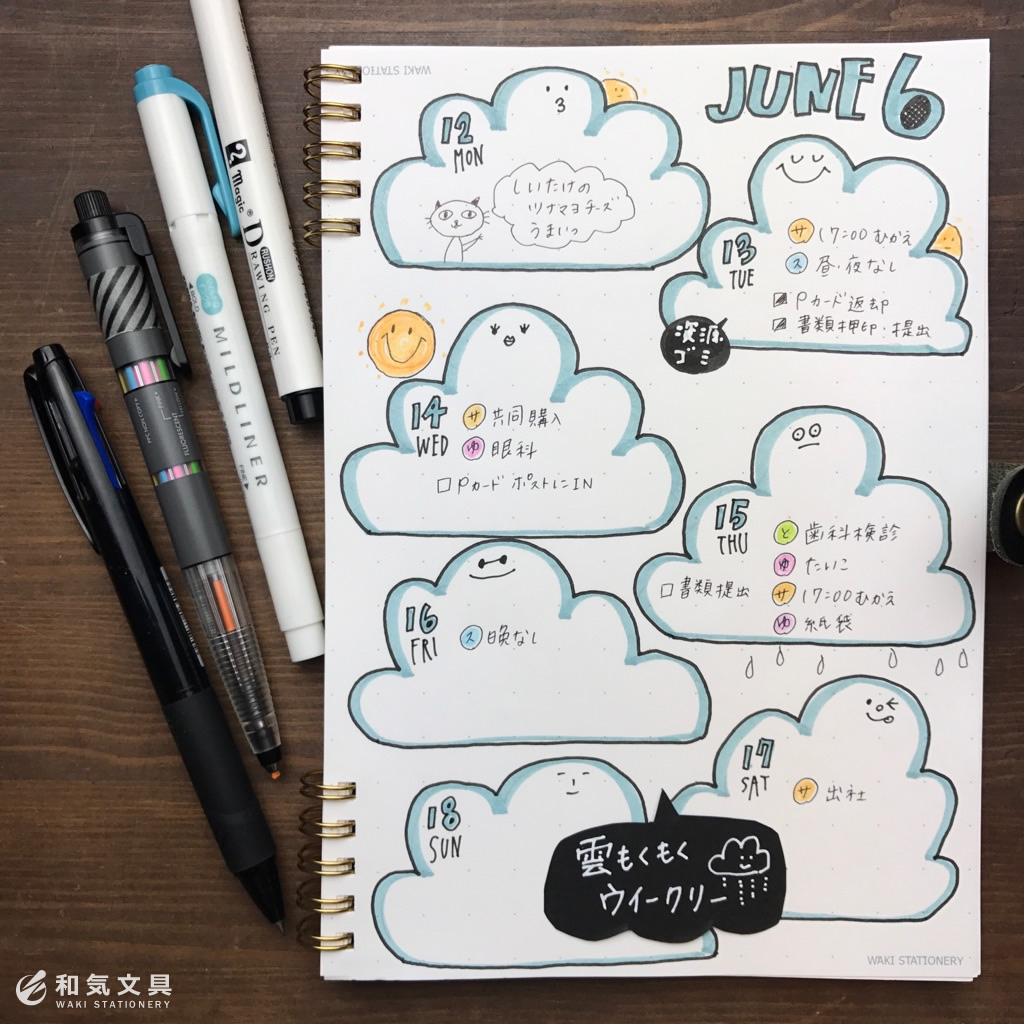 WAKI STATIONERY
JUNE 6
12
MON
しいたけの
ツナマヨチーズ
うまいっ
13
TUE
サ 17:00 むかえ
ス 昼・夜なし
Pカード返却
書類押印・提出
資源
ゴミ
14
WED
サ 共同購入
ゆ 眼科
Pカード ポストにIN
15
THU
と 歯科検診
ゆ たいこ
書類提出
サ 17:00 むかえ
ゆ 紙袋
16
FRI
ス 晩なし
17
SAT
サ 出社
18
SUN
雲もくもく
ウイークリー
WAKI STATIONERY
MILDLINER
Magic
DRAWING PEN
FLUORESCENT
和気文具
WAKI STATIONERY